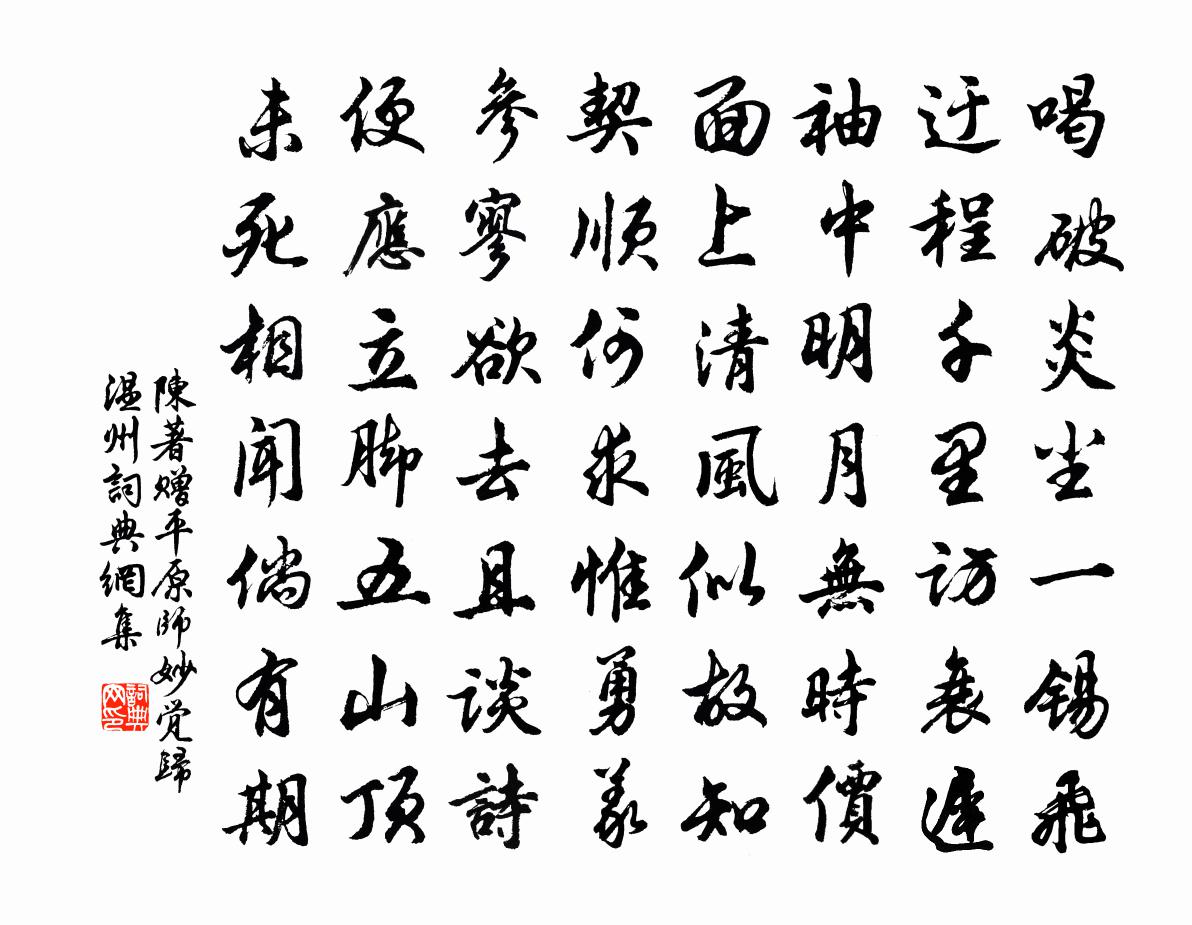 喝破炎尘一锡飛
迂程千里访衰遲
袖中明月無時價
面上清風似故知
契順何求惟勇義
參寥欲去且談詩
便應立脚五山頂
未死相聞倘有期
陳著贈平原師妙覚歸
温州詞典網集
詞典网印